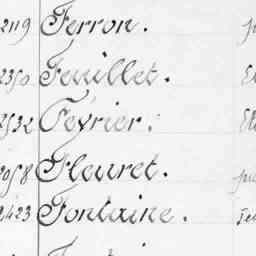 2119 Ferron.
2350 Feuillet.
2532 Février.
2058 Fleuret.
2423 Fontaine.